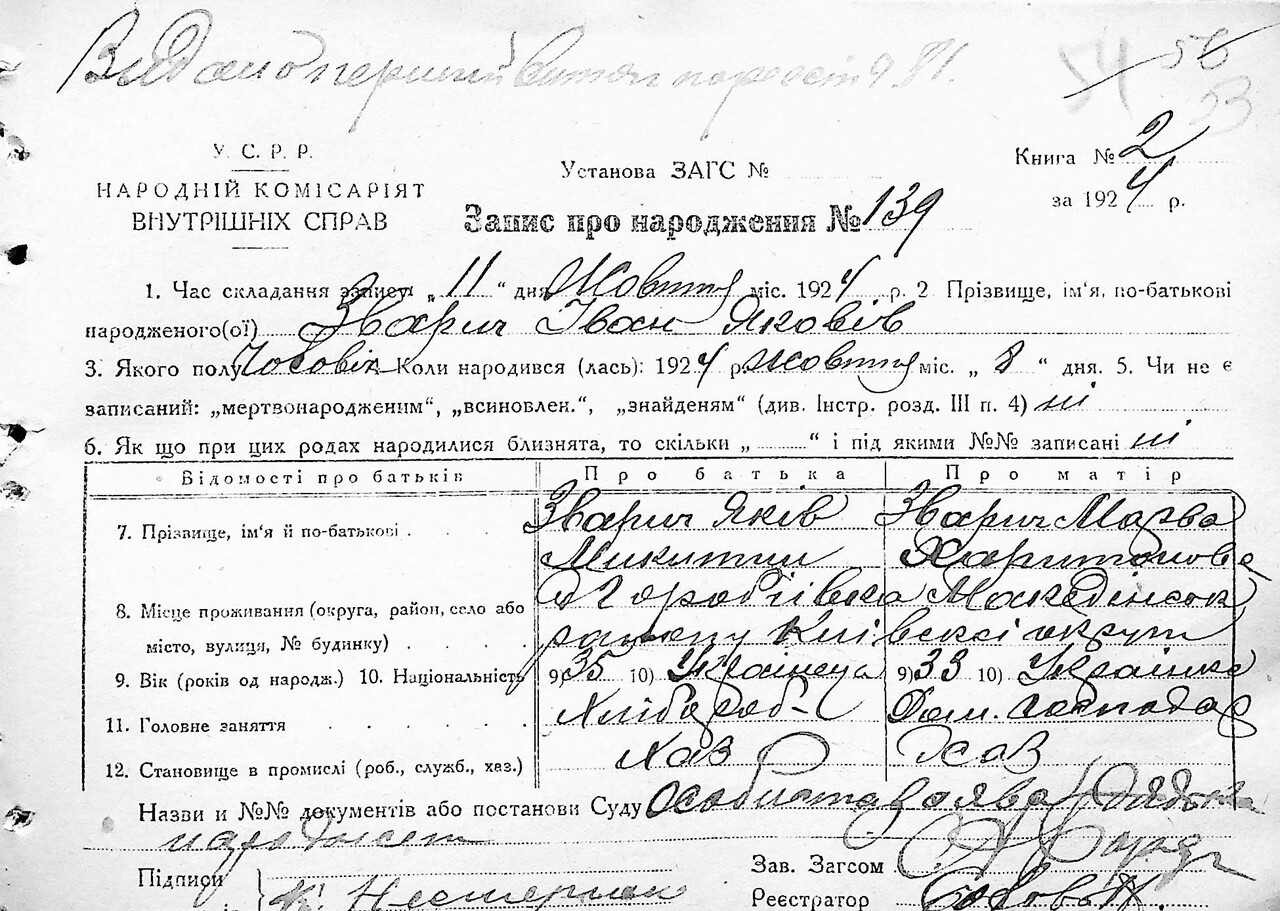 Видано перший витяг
54 56
53
У. С. Р. Р.
НАРОДНІЙ КОМІСАРІЯТ
ВНУТРІШНІХ СПРАВ
Установа ЗАГС №
Книга № 2
за 1924 р.
Запис про народження № 139
1. Час складання запису: „11“ дня Жовтня міс. 1924 р. 2 Прізвище, ім'я, по-батькові
народженого(ої) Зварич Іван Яковів
3. Якого полу Чоловік Коли народився (лась): 1924 р. Жовтня міс. „8“ дня. 5. Чи не є
записаний: „мертвонародженим“, „всиновлен.“, „знайденям“ (див. Інстр. розд. III п. 4) ні
6. Як що при цих родах народилися близнята, то скільки „ “ і під якими №№ записані ні
Відомості про батьків Про батька Про матір
7. Прізвище, ім'я й по-батькові Зварич Яків Зварич Марва
Микитин Харитонова
8. Місце проживання (округа, район, село або Горобіївка Македінськ
місто, вулиця, № будинку) району Київскої округи
9. Вік (років од народж.) 10. Національність 9) 35 10) Українець 9) 33 10) Українка
11. Головне заняття Хлібороб Дом. господар
12. Становище в промислі (роб., служб., хаз.) Хаз Хаз
Назви и №№ документів або постанови Суду Особиста заява
Зав. Загсом
Підписи
Реєстратор